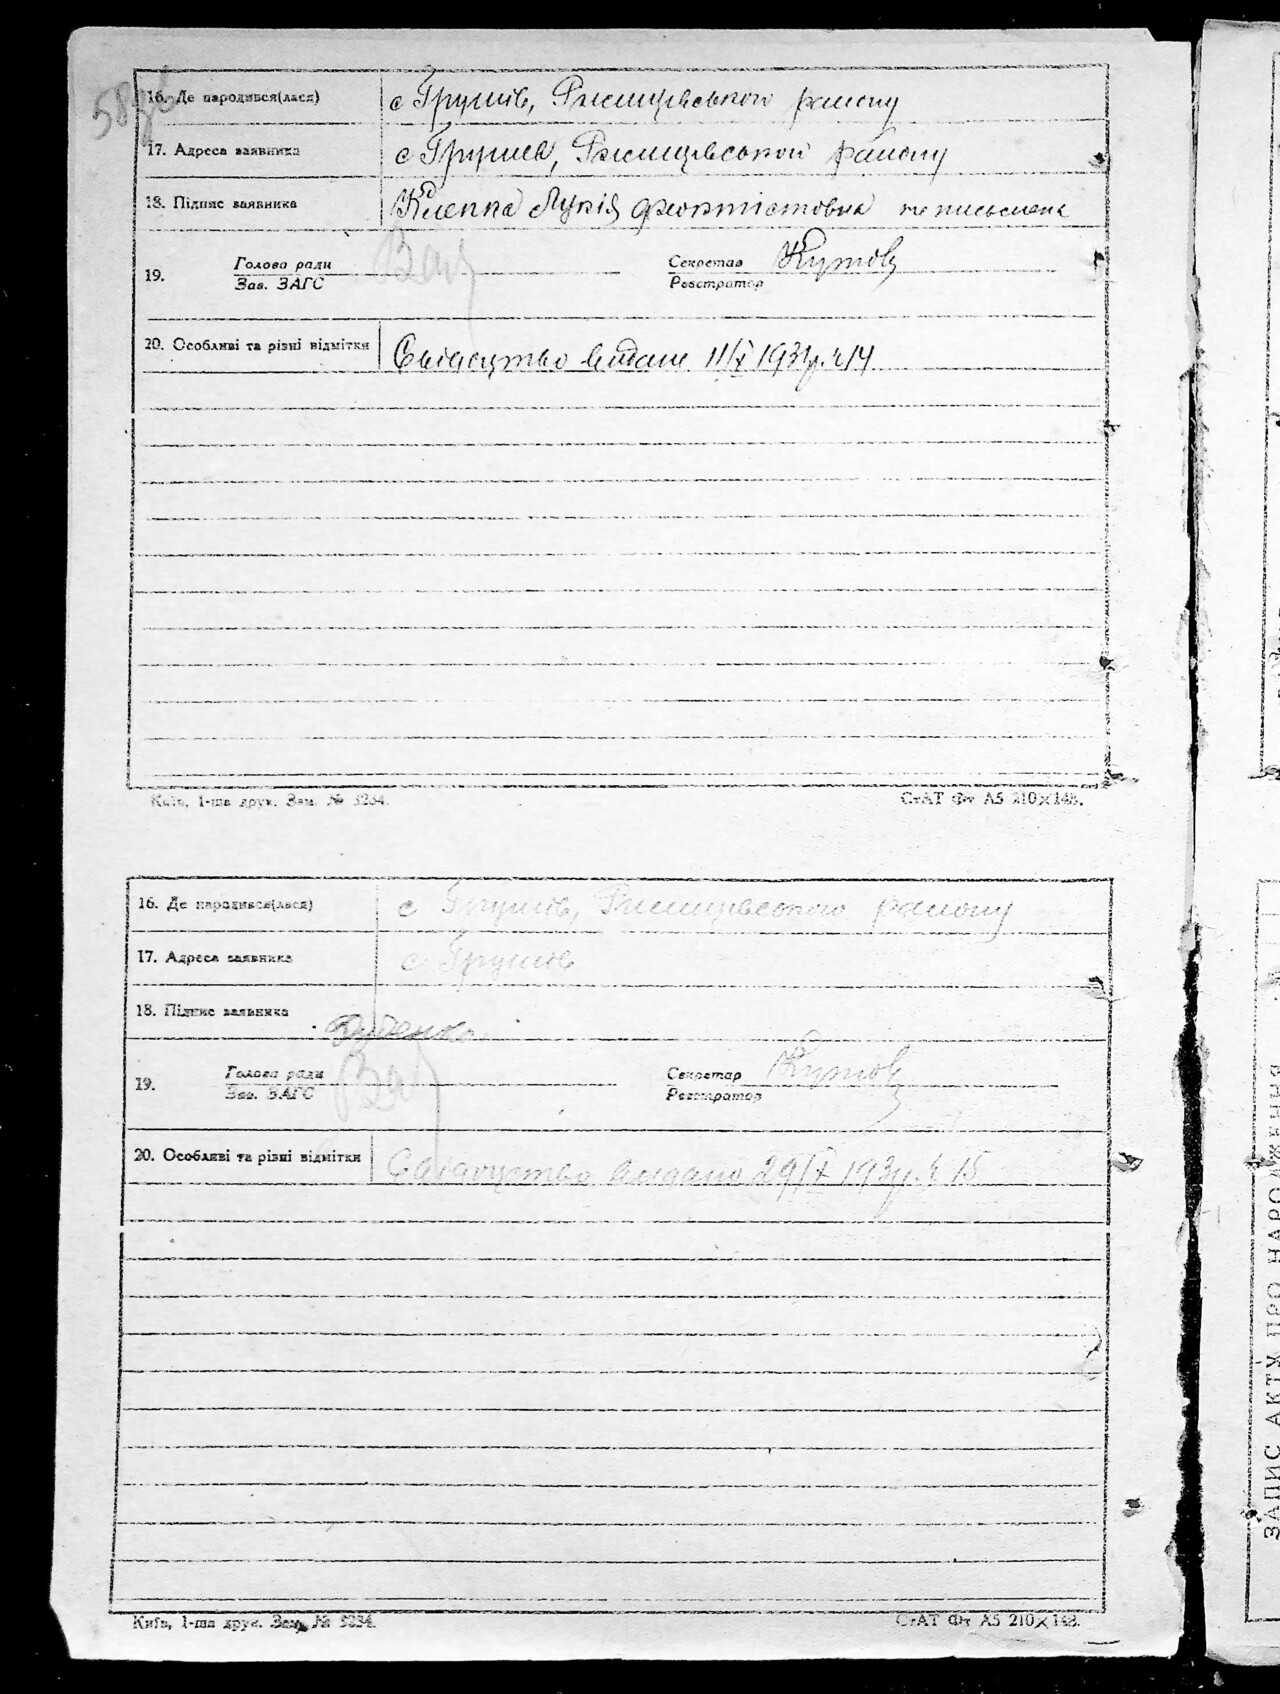 58
16. Де народився(лася) с Грушів, Ржищівського району
17. Адреса заявника с Грушів, Ржищівського району
18. Підпис заявника Лукія Феоктістовна неписьмена
19. Голова ради Секретар Кутов
Зав. ЗАГС Реєстратор
20. Особливі та різні відмітки Свідоцтво видане 11/X 193 р. ч 14
Київ, 1-ша друк. Зам. № 5234. СтАТ Фт А5 210×148.
16. Де народився(лася) с Грушів, Ржищівського району
17. Адреса заявника с Грушів
18. Підпис заявника
19. Голова ради Секретар Кутов
Зав. ЗАГС Реєстратор
20. Особливі та різні відмітки Свідоцтво видано 29/X 193 р. ч 15
Київ, 1-ша друк. Зам. № 5234. СтАТ Фт А5 210×148.
ЗАПИС АКТУ ПРО НАРОДЖЕННЯ